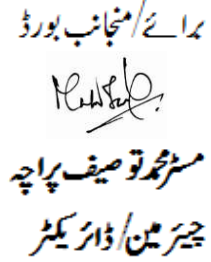 برائے/منجانب بورڈ
مسٹر محمد توصیف پراچہ
چیئر مین/ڈائریکٹر